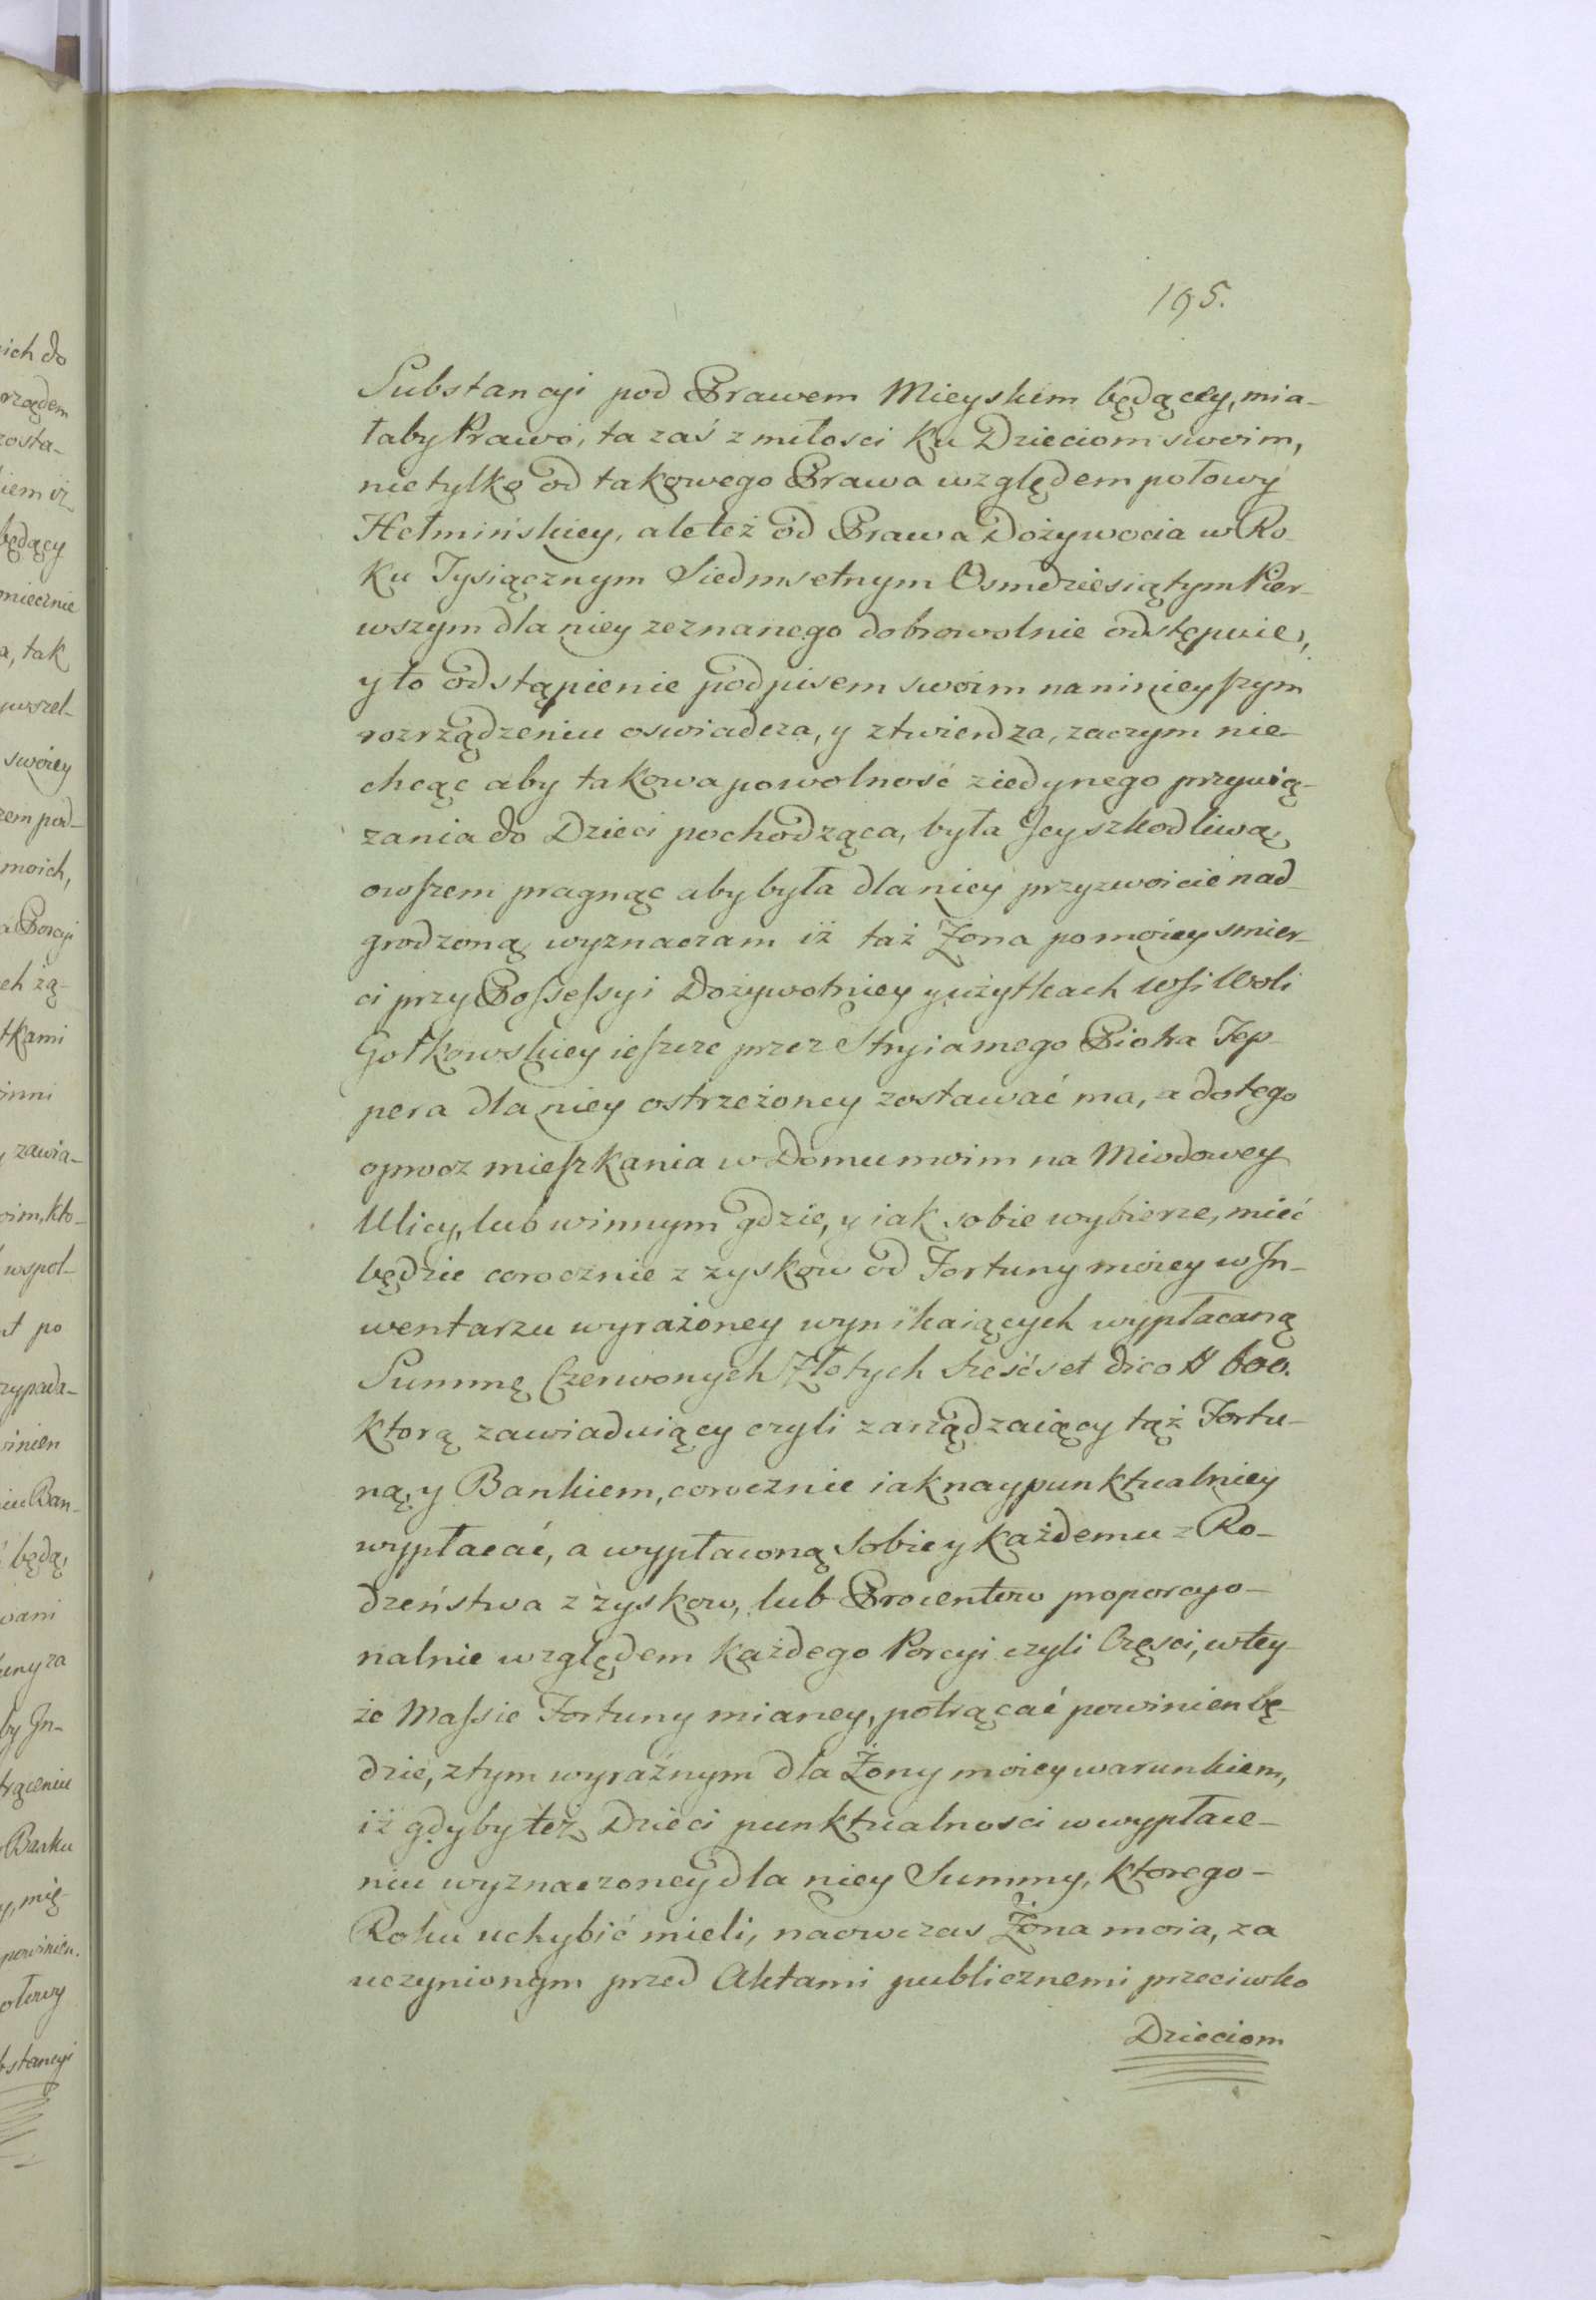 195.
Substancyi pod Prawem Mieyskim będącey, mia-
łaby Prawo, ta zaś z miłosci ku Dzieciom swoim,
nietylko od takowego Prawa względem połowy
Hełmińskiey, ale też od Prawa Dożywocia w Ro-
ku Tysiącznym Siedmsetnym Osmdziesiątym Pier-
wszym dla niey zeznanego dobrowolnie odstępuie,
y to odstąpienie podpisem swoim na ninieyszym
rozrządzeniu oswiadcza, y ztwierdza, zaczym nie-
chcąc aby takowa powolność ziedynego przywią-
zania do Dzieci pochodząca, była Jey szkodliwą,
owszem pragnąc aby była dla niey przyzwoicie nad-
grodzoną, wyznaczam iż taż Żona po moiey smier-
ci przy Possessyi Dożywotniey y użytkach Wsi Woli
Gołkowskiey ieszcze przez Stryia mego Piotra Tep-
pera dla niey ostrzeżoney zostawać ma, a do tego
oprocz mieszkania w Domu moim na Miodowey
Ulicy, lub w innym gdzie, y iak sobie wybierze, mieć
będzie corocznie z zyskow od Fortuny moiey w In-
wentarzu wyrażoney wynikaiących wypłacaną
Summę Czerwonych Złotych sześćset dico # 600.
ktorą zawiaduiący czyli zarządzaiący tąż Fortu-
ną, y Bankiem, corocznie iak naypunktualniey
wypłacać, a wypłaconą Sobie y każdemu z Ro-
dzeństwa z zyskow, lub Procentow proporcyo-
nalnie względem każdego Porcyi czyli Częsci, w tey-
że Massie Fortuny mianey, potrącać powinien bę-
dzie, z tym wyraźnym dla Żony moiey warunkiem,
iż gdyby też Dzieci punktualnosci w wypłace-
niu wyznaczoney dla niey Summy, ktorego-
Roku uchybić mieli, naowczas Żona moia, za
uczynionym przed Aktami publicznemi przeciwko
Dzieciom